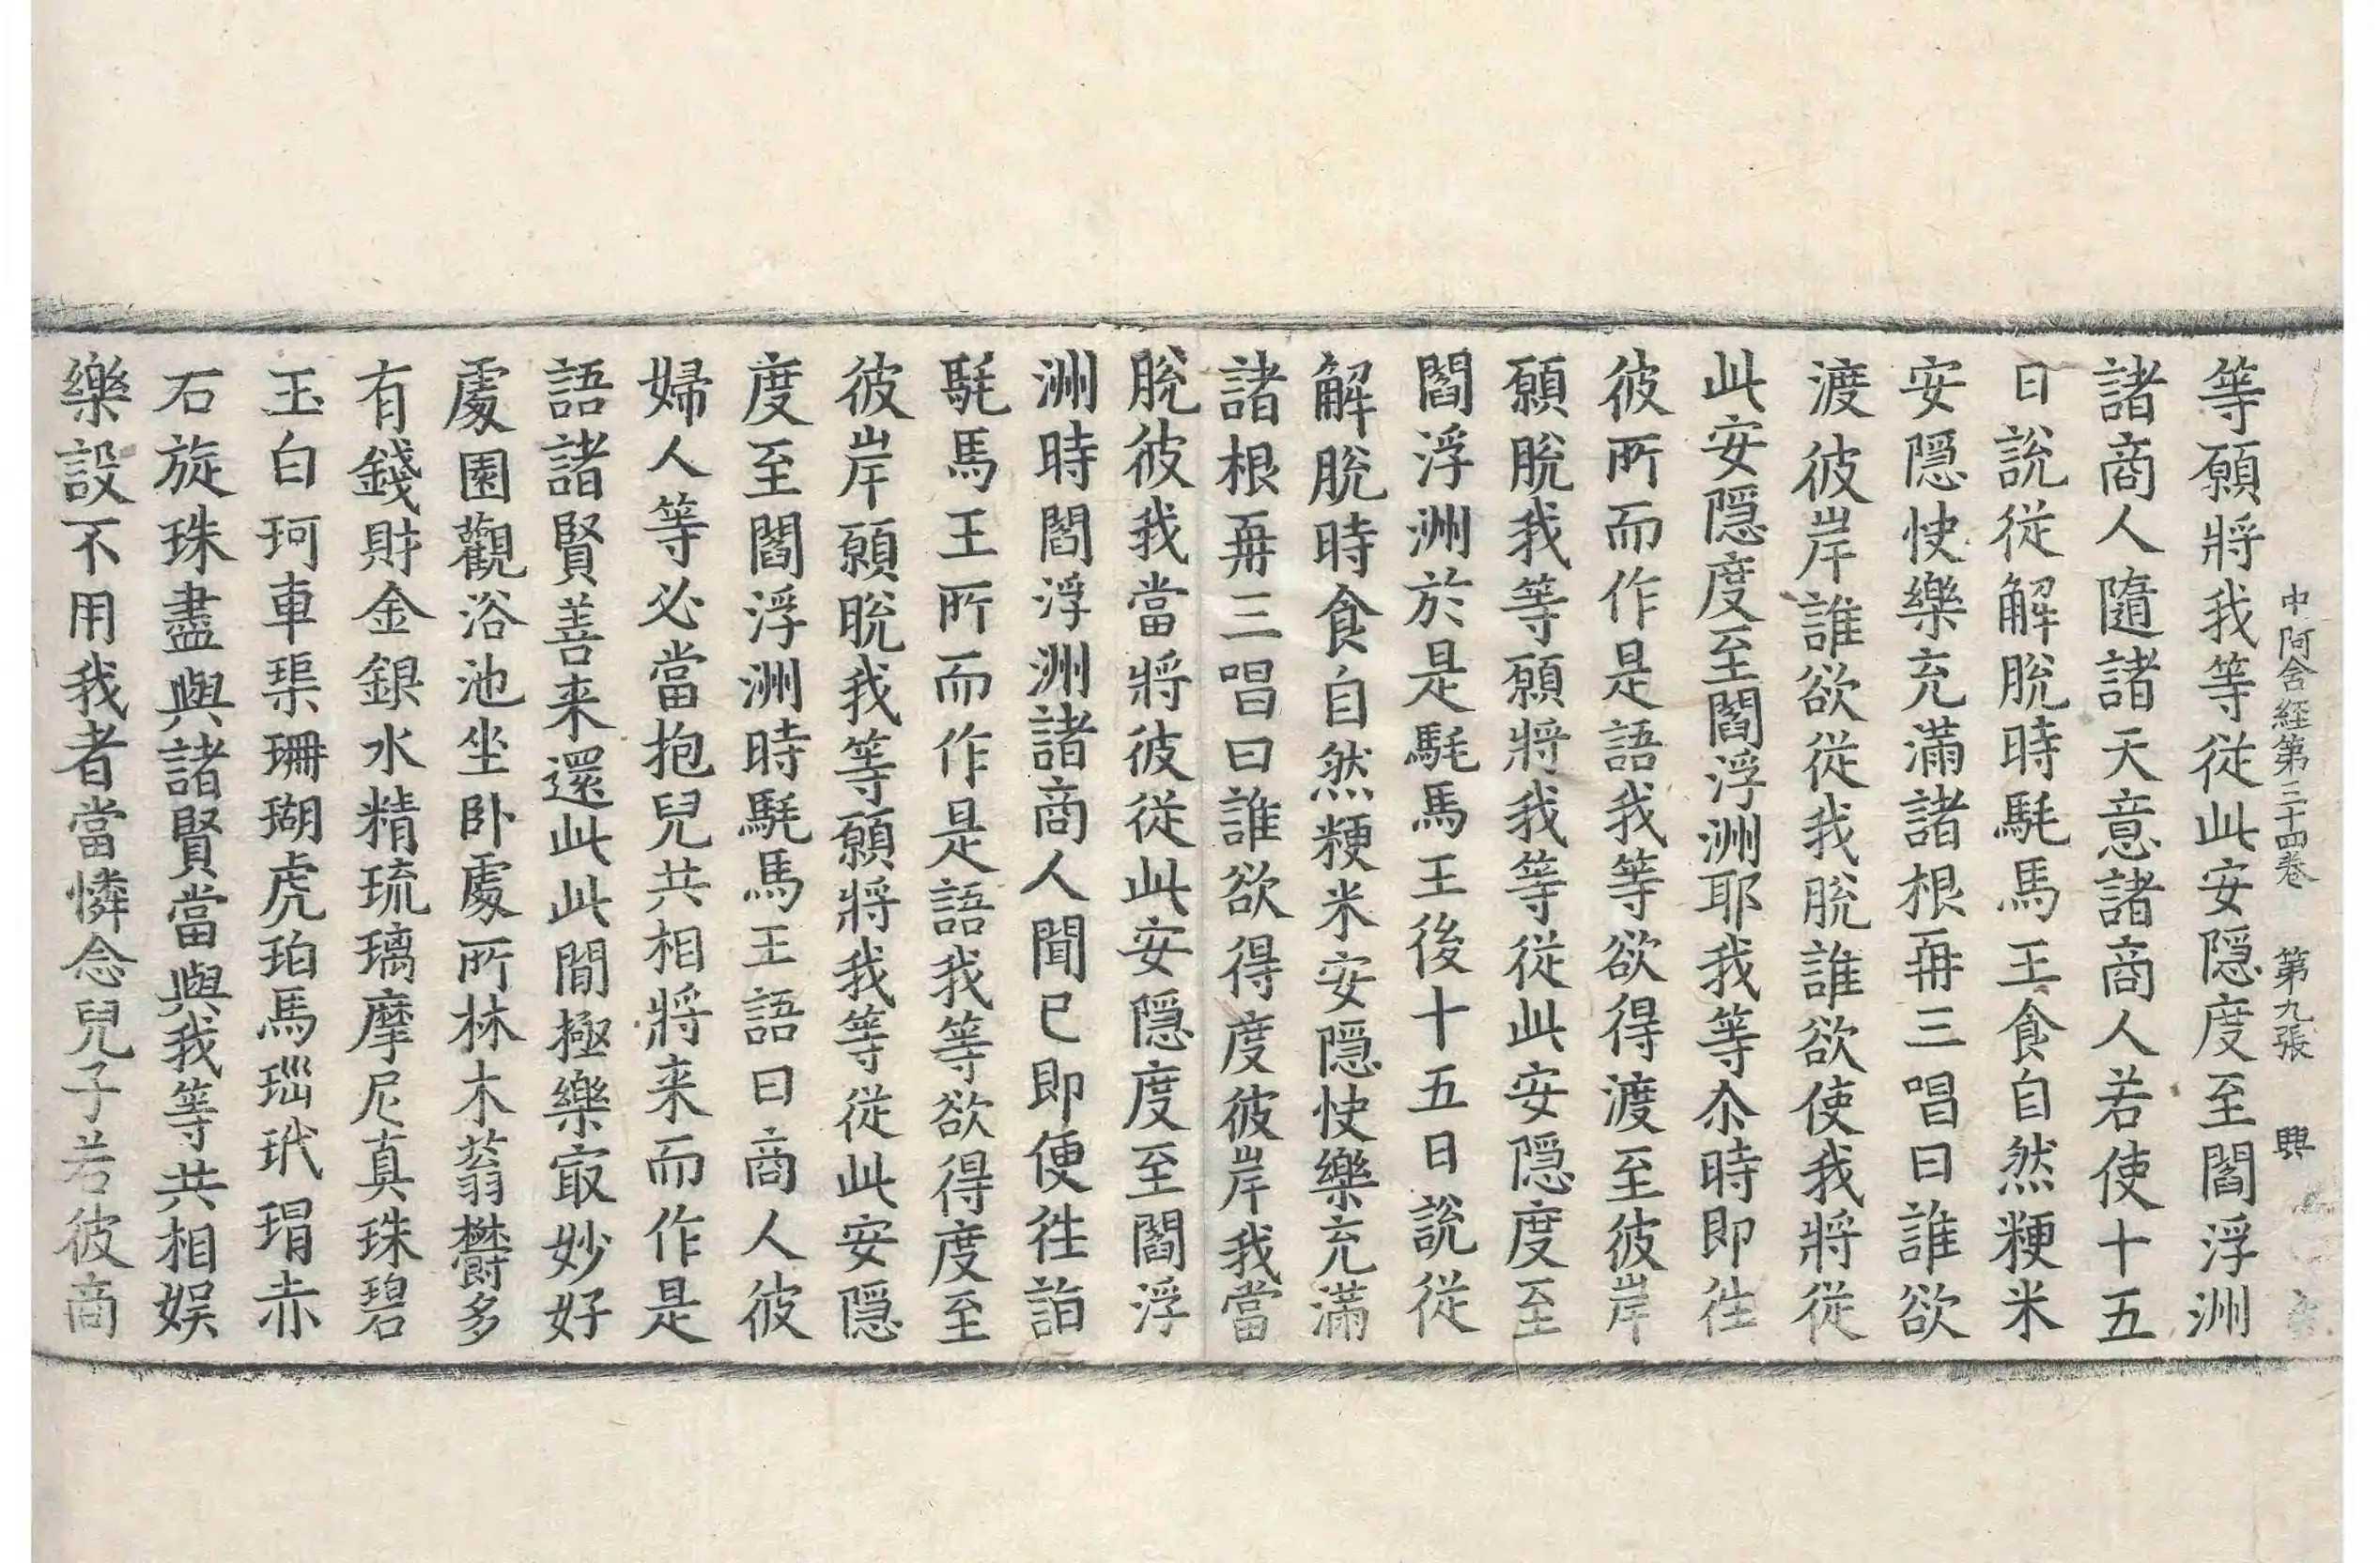 中阿含経第三十四卷　第九張　興
等願將我等従此安隱度至閻浮洲
諸商人隨諸天意諸商人若使十五
日說従解脫時髦馬王食自然粳米
安隱快樂充滿諸根再三唱曰誰欲
渡彼岸誰欲従我脫誰欲使我將従
此安隱度至閻浮洲耶我等尒時即往
彼所而作是語我等欲得渡至彼岸
願脫我等願將我等従此安隱度至
閻浮洲於是髦馬王後十五日說従
解脫時食自然粳米安隱快樂充滿
諸根再三唱曰誰欲得度彼岸我當
脫彼我當將彼従此安隱度至閻浮
洲時閻浮洲諸商人聞已即便往詣
髦馬王所而作是語我等欲得度至
彼岸願脫我等願將我等従此安隱
度至閻浮洲時髦馬王語曰商人彼
婦人等必當抱兒共相將来而作是
語諸賢善来還此此間極樂㝡妙好
處園觀浴池坐卧處所林木蓊欝多
有錢財金銀水精琉璃摩尼真珠碧
玉白珂車渠珊瑚虎珀馬瑙玳瑁赤
石旋珠盡與諸賢當與我等共相娛
樂設不用我者當憐念兒子若彼商